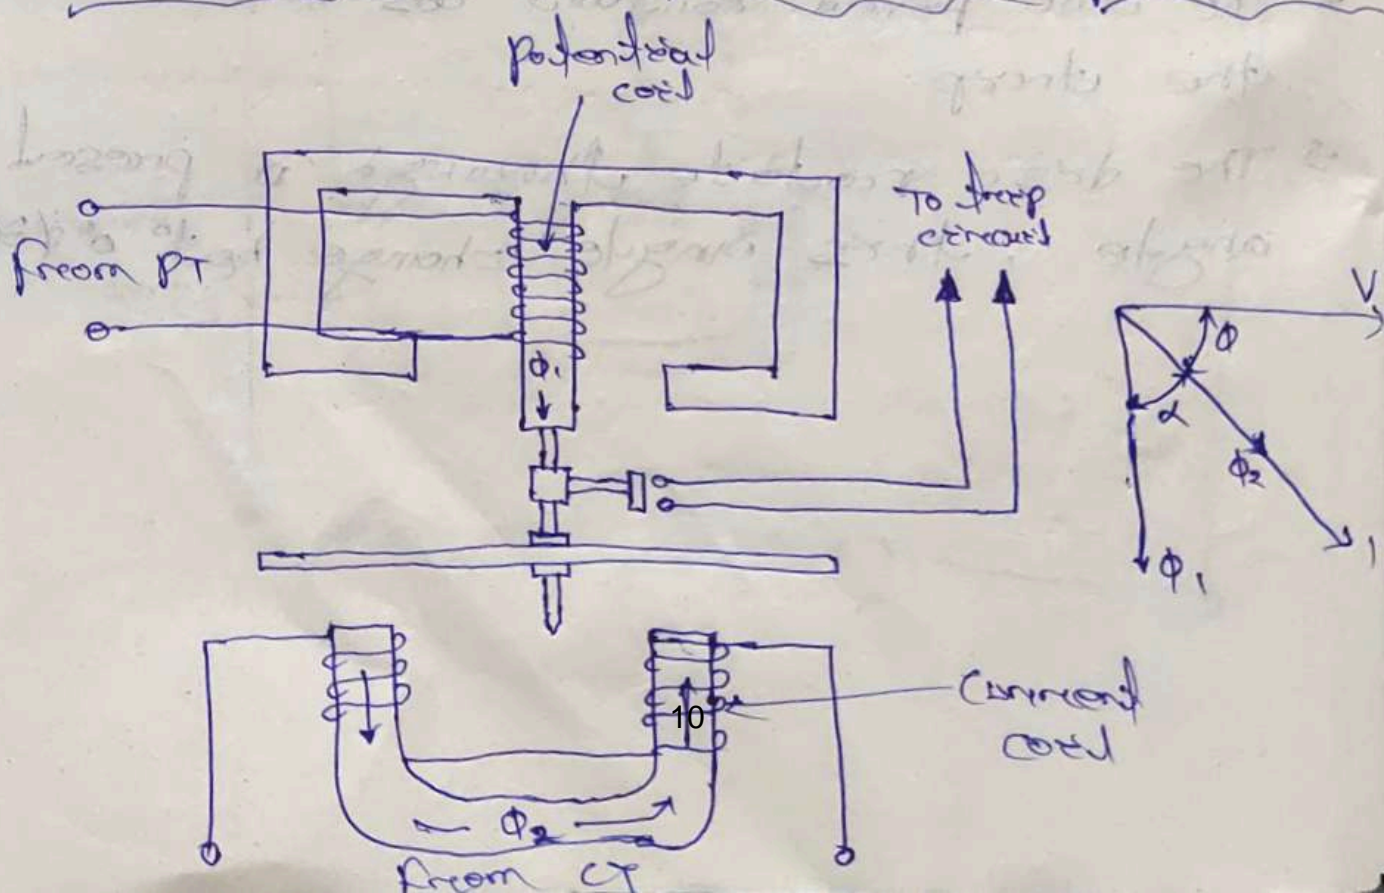 potential
coil
From PT
To trip
circuit
Φ₁
V
Φ
α
Φ₂
I
Φ₁
10
Current
coil
Φ₂
From CT